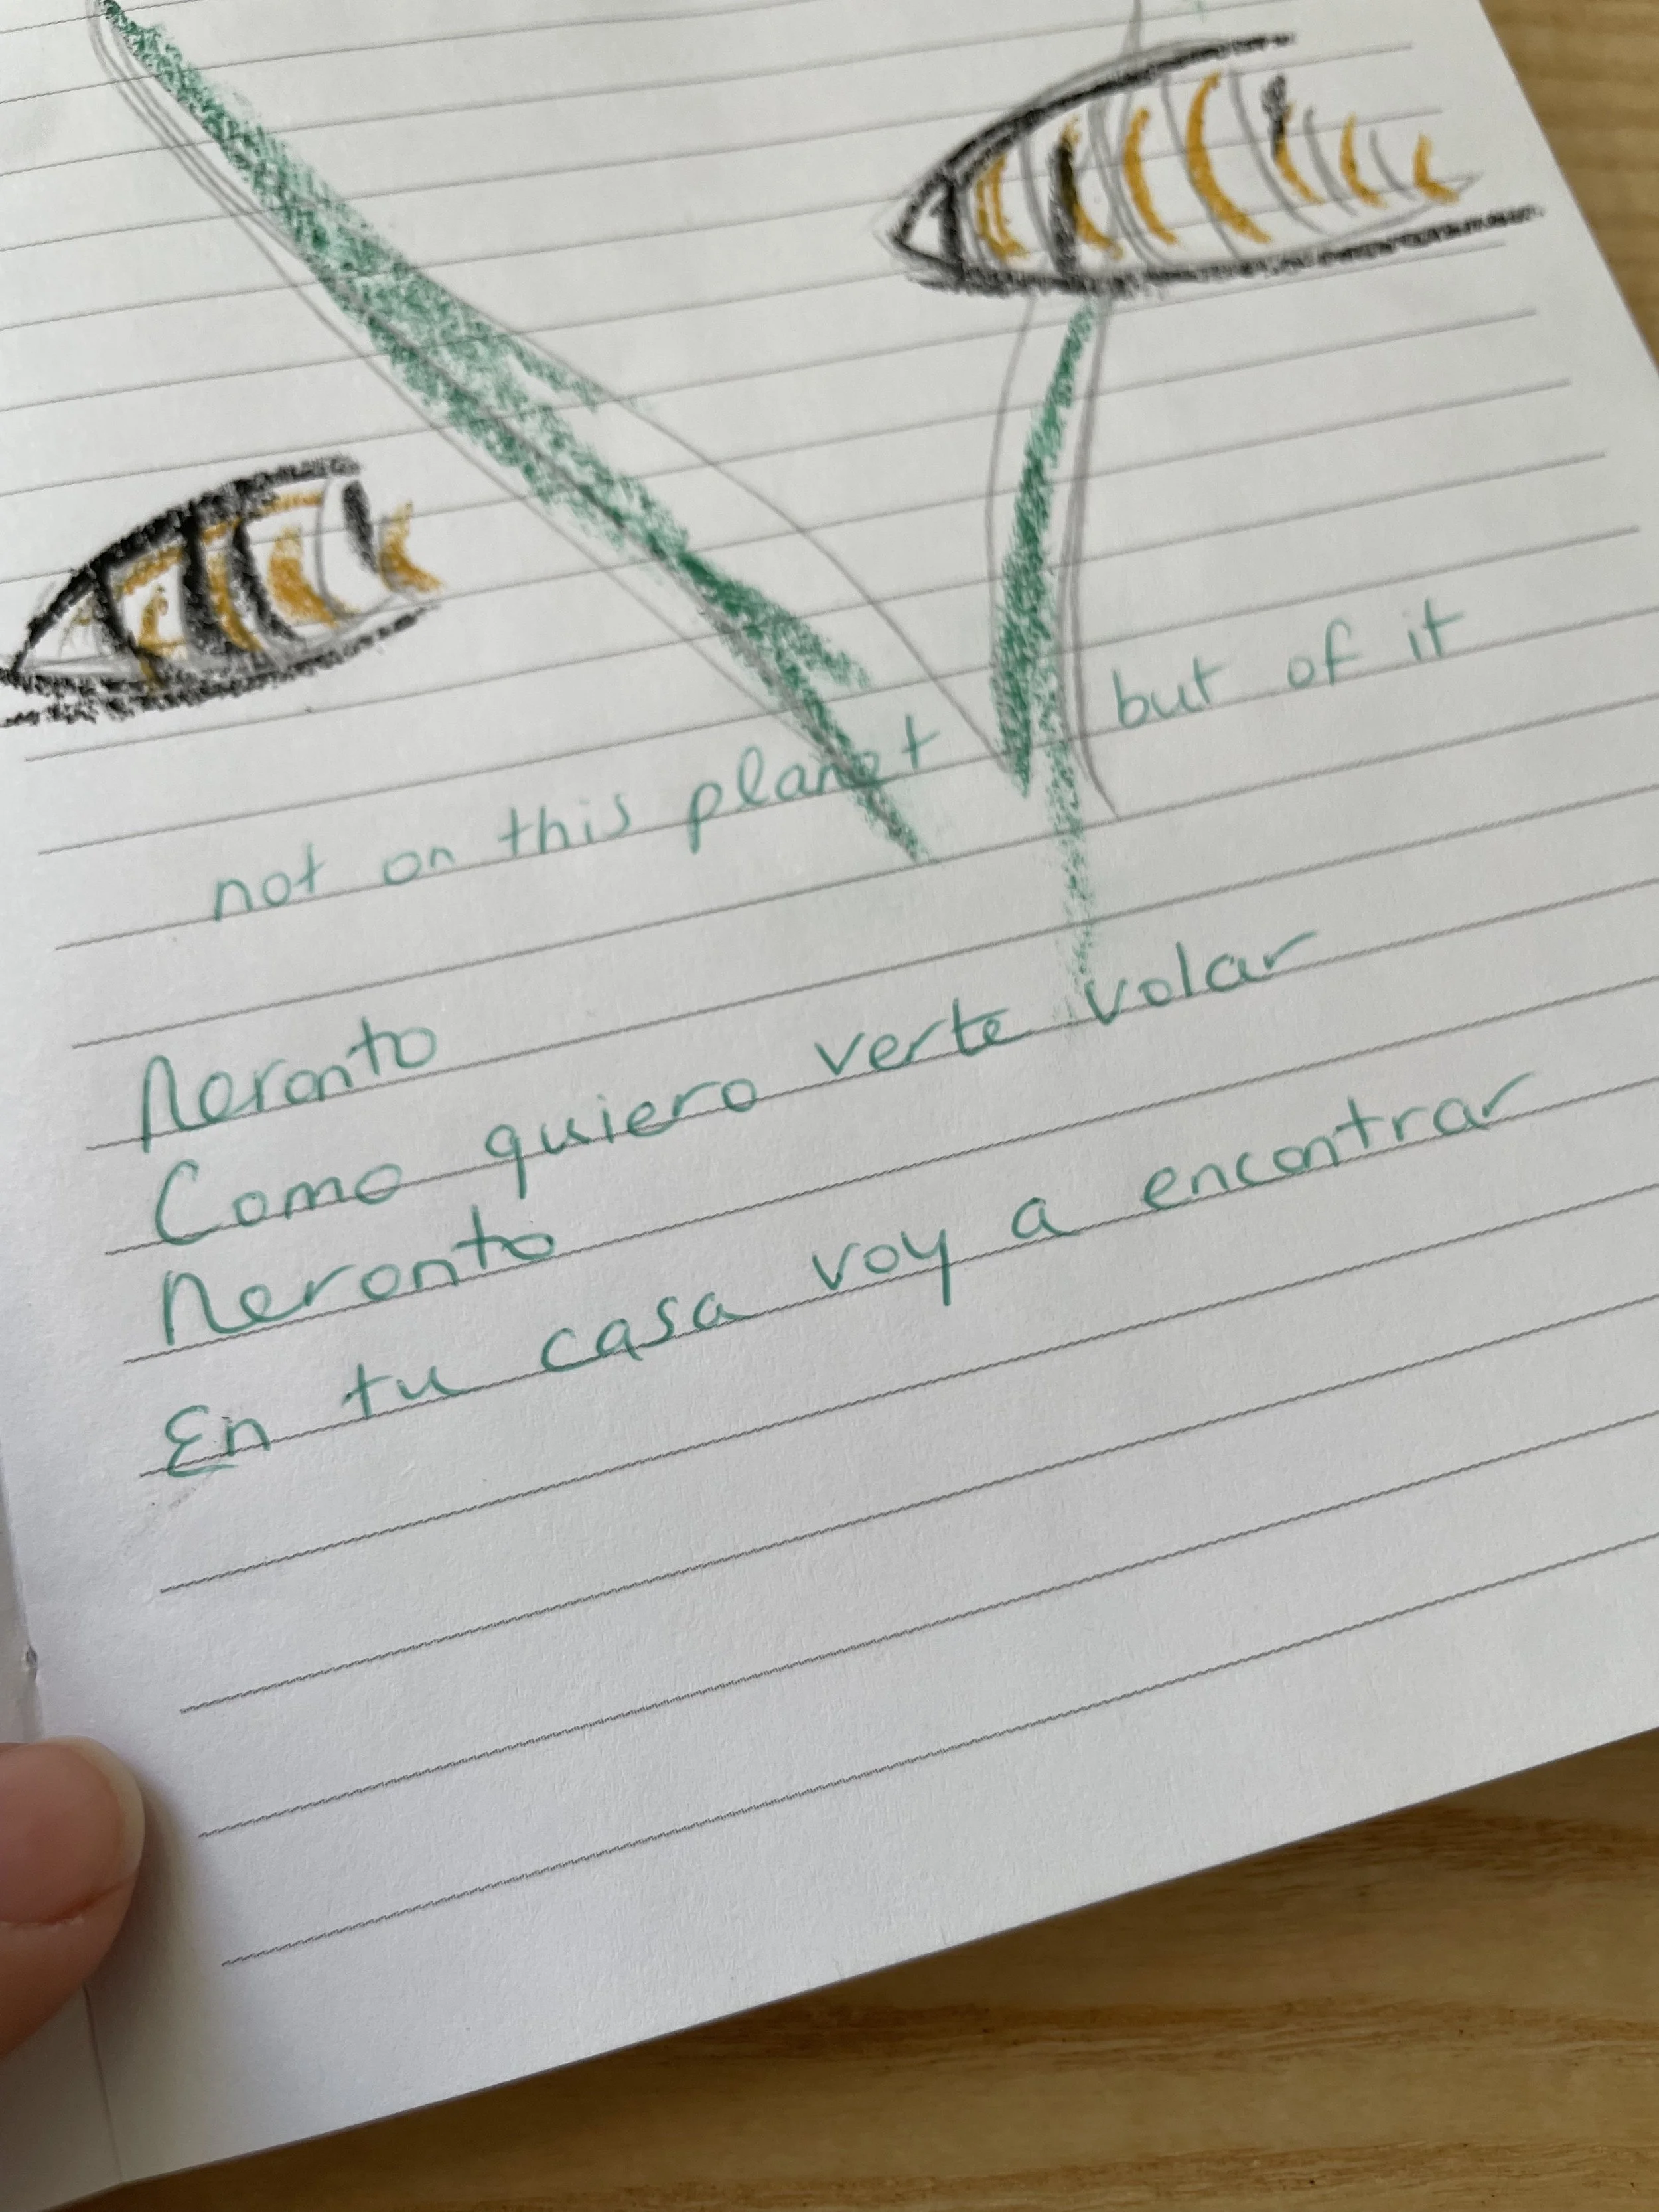 not on this planet but of it
Neronto
Como quiero verte volar
Neronto
En tu casa voy a encontrar